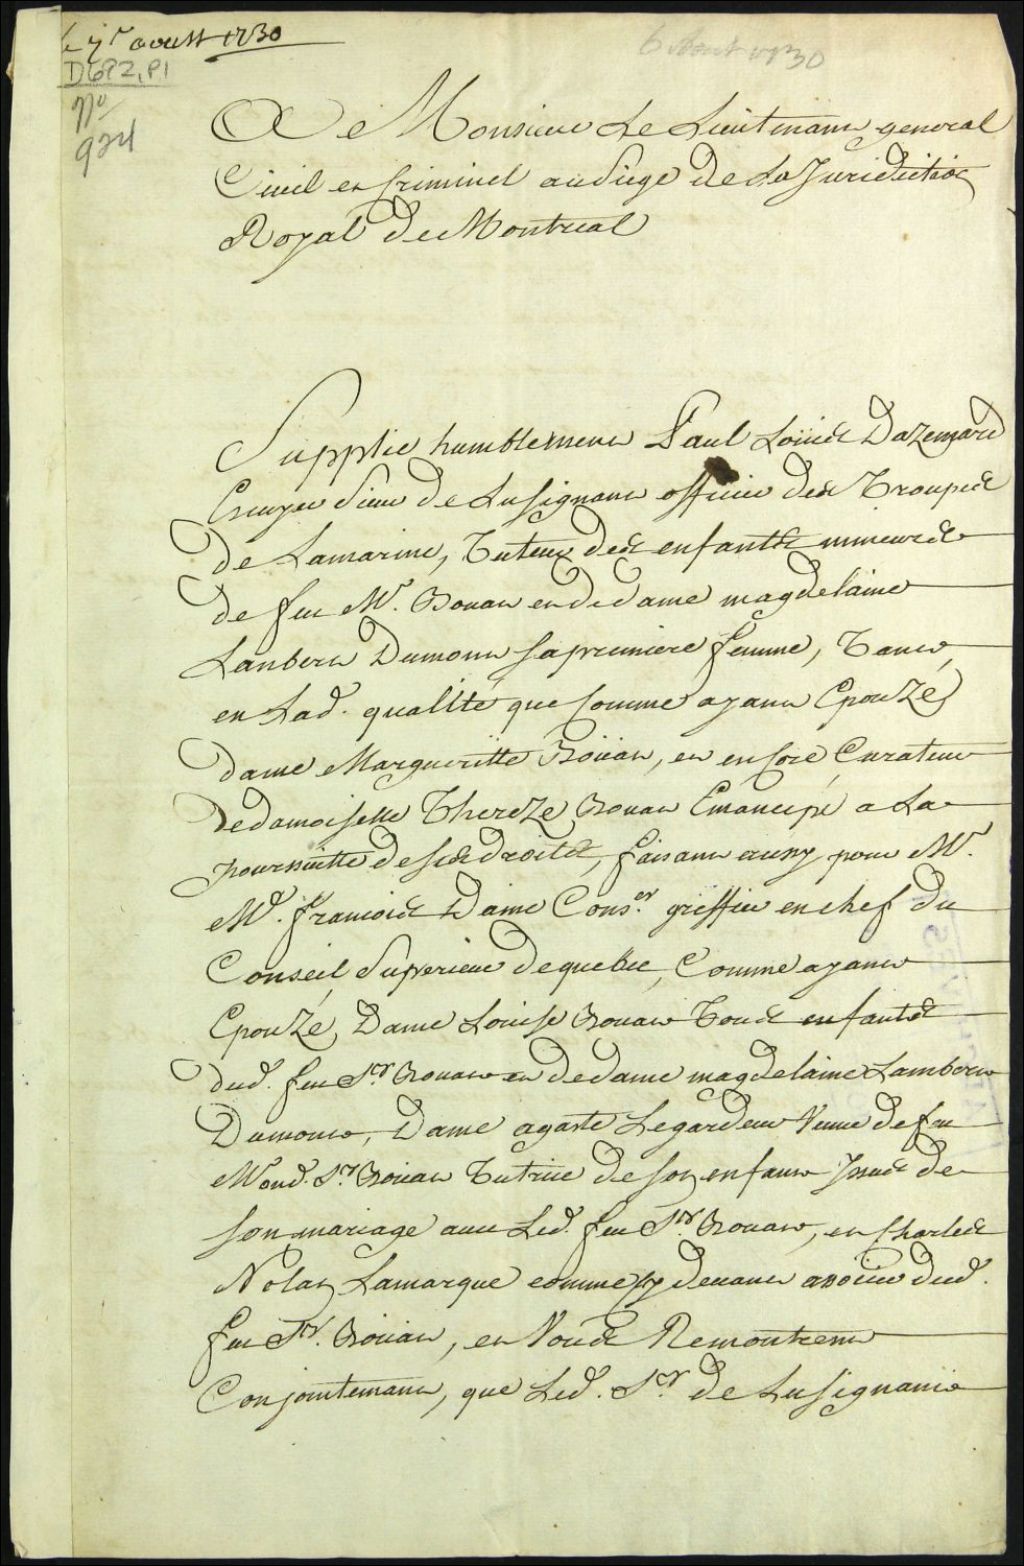 Le 7r aoust 1730
D682, P1
6 Aout 1730
No
924
A Monsieur Le Lieutenant general
Civil et Criminel au Siege de La Juridiction
Royal de Montreal
Supplie humblement Paul Loüis Dazemard
Ecuyer Sieur de Lusignant officier des Troupes
de Lamarine, Tuteur des enfants mineurs
de feu Mr. Bouat et de dame magdelaine
Lambert Dumont sa premiere femme, Tant
en Lad. quallité que Comme ayant Epouzé
dame Margueritte Boüat, et en Core Curateur
de damoiselle Thereze Bouat Emancipé a La
poursuitte de ses droits, faisant aussy pour Mr.
Me. francois Daine Conser. greffier en chef du
Conseil Superieur de quebec, Comme ayant
Epouzé, Dame Louise Bouat Tous enfants
dud. feu Sr. Bouat et de dame magdelaine Lambert
Dumont, Dame agatte Legardeur Veuve de feu
Mond. Sr. Boüat Tutrice de son enfant Issus de
son mariage avec Led. feu Sr. Bouat, et Charles
Nolan Lamarque comme cy devant associé dud.
feu Sr. Boüat, et Vous Remontrent
Conjointemant, que Led. Sr. de Lusignant